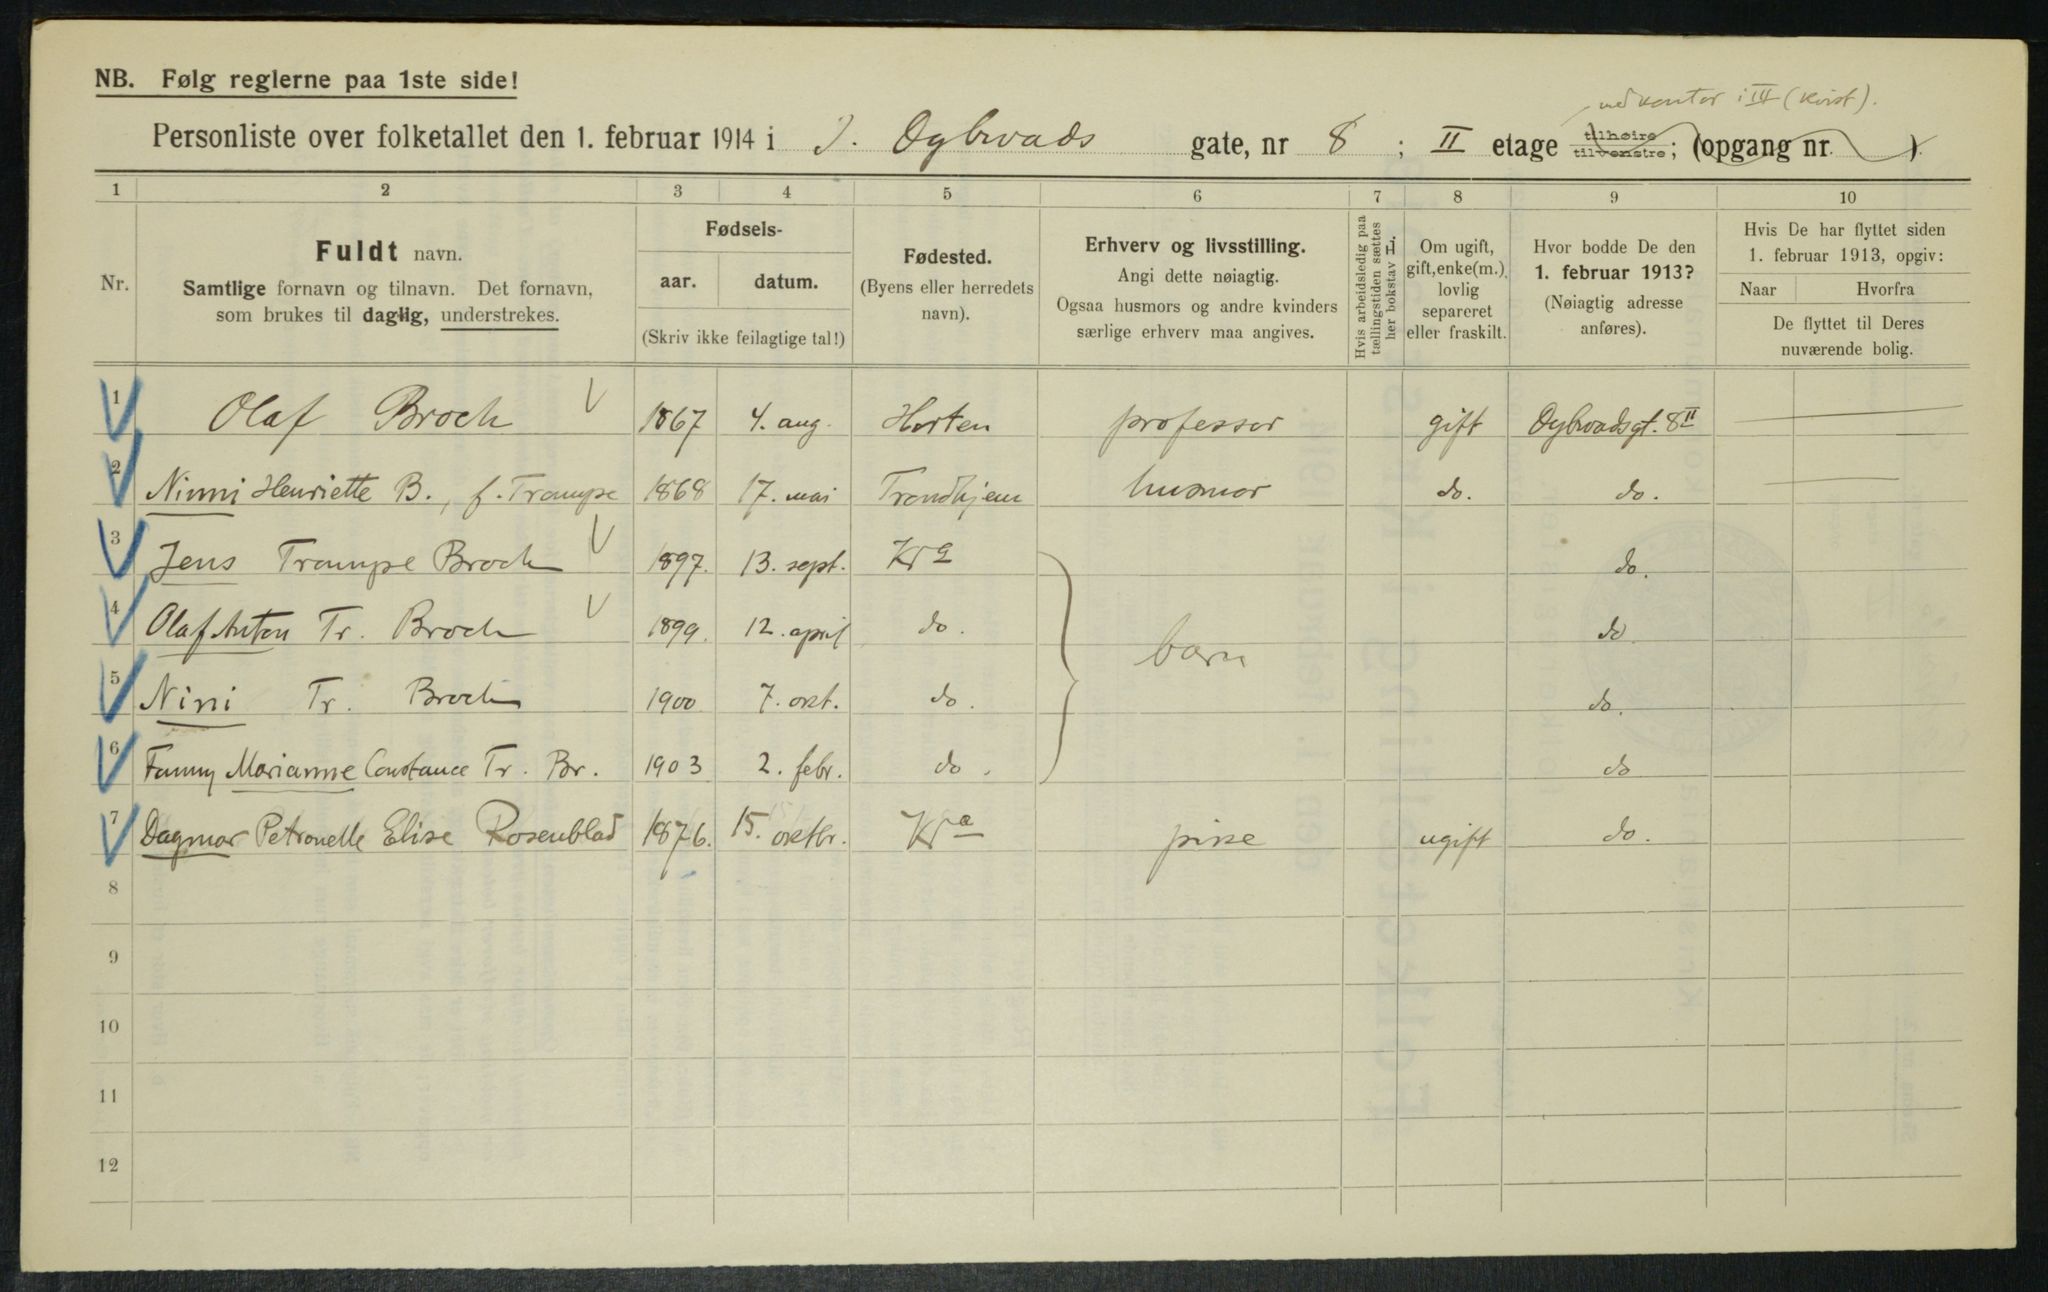 NB. Følg reglerne paa 1ste side!
med kontor i III (kvist).
Personliste over folketallet den 1. februar 1914 i J. Dybwads gate, nr 8; II etage tilhøire tilvenstre; (opgang nr. ).
1 2 3 4 5 6 7 8 9 10
Nr.
Fuldt navn.
Samtlige fornavn og tilnavn. Det fornavn,
som brukes til daglig, understrekes.
Fødsels-
aar. datum.
(Skriv ikke feilagtige tal!)
Fødested.
(Byens eller herredets
navn).
Erhverv og livsstilling.
Angi dette nøiagtig.
Ogsaa husmors og andre kvinders
særlige erhverv maa angives.
Hvis arbeidsledig paa
tællingstiden sættes
her bokstav L.
Om ugift,
gift, enke(m.),
lovlig
separeret
eller fraskilt.
Hvor bodde De den
1. februar 1913?
(Nøiagtig adresse
anføres).
Hvis De har flyttet siden
1. februar 1913, opgiv:
Naar Hvorfra
De flyttet til Deres
nuværende bolig.
1 Olaf Broch 1867 4. aug. Horten professor gift Dybwadsgt. 8 II
2 Ninni Henriette B., f. Trampe 1868 17. mai Trondhjem husmor do. do.
3 Jens Trampe Broch 1897. 13. sept. Kra do.
4 Olaf Anton Tr. Broch 1899. 12. april do. do.
barn
5 Nini Tr. Broch 1900 7. okt. do. do.
6 Fanny Marianne Constance Tr. Br. 1903 2. febr. do. do
7 Dagmar Petronelle Elise Rosenblad 1876. 15. oktbr. Kra pike ugift do.
8
9
10
11
12